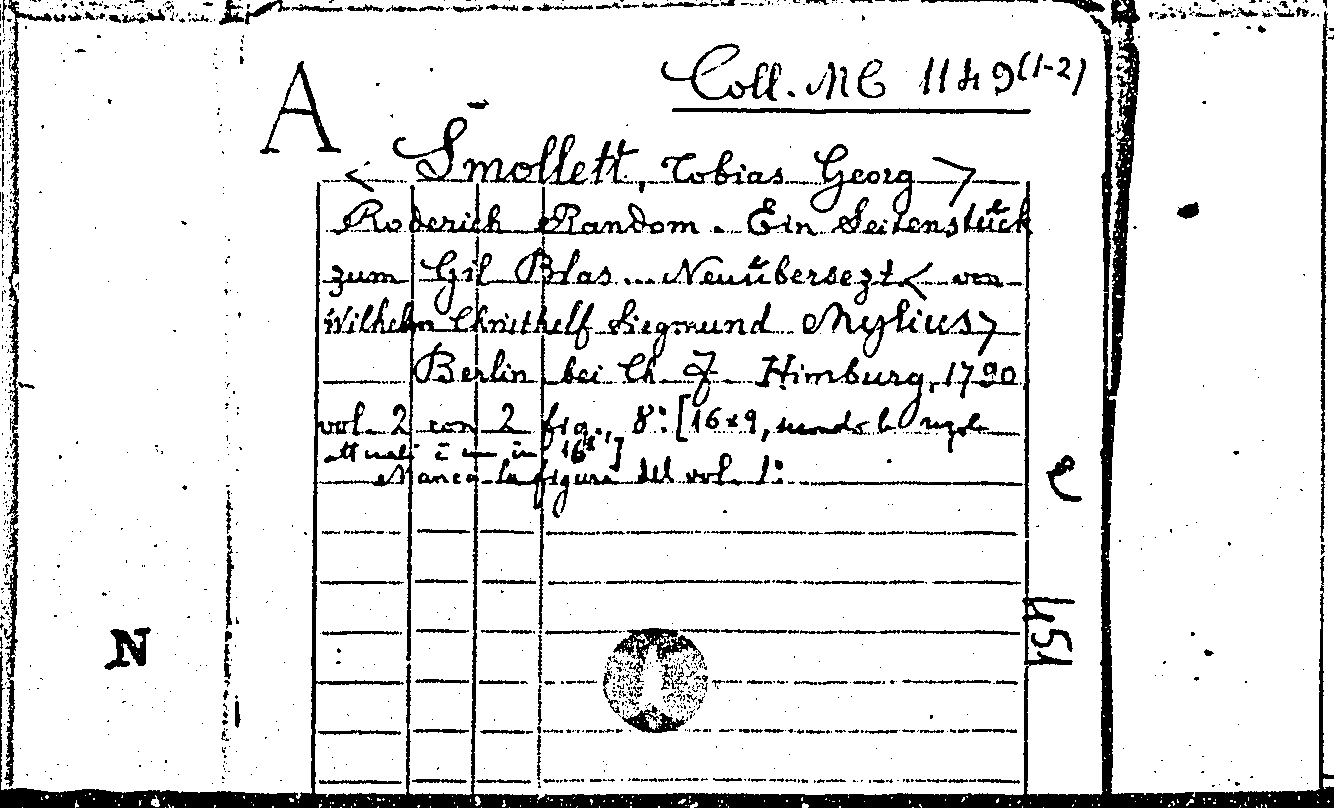 A
Coll. MC 1149(1-2)
< Smollett, Tobias Georg >
Roderich Random. Ein Seitenstück
zum Gil Blas... Neuübersezt < von
Wilhelm Christhelf Siegmund Mylius >
Berlin bei Ch. F. Himburg, 1790
vol. 2 con 2 fig., 8: [16x9, secondo le regole
attuali è in 16°]
Manca la figura del vol. 1:
N
451